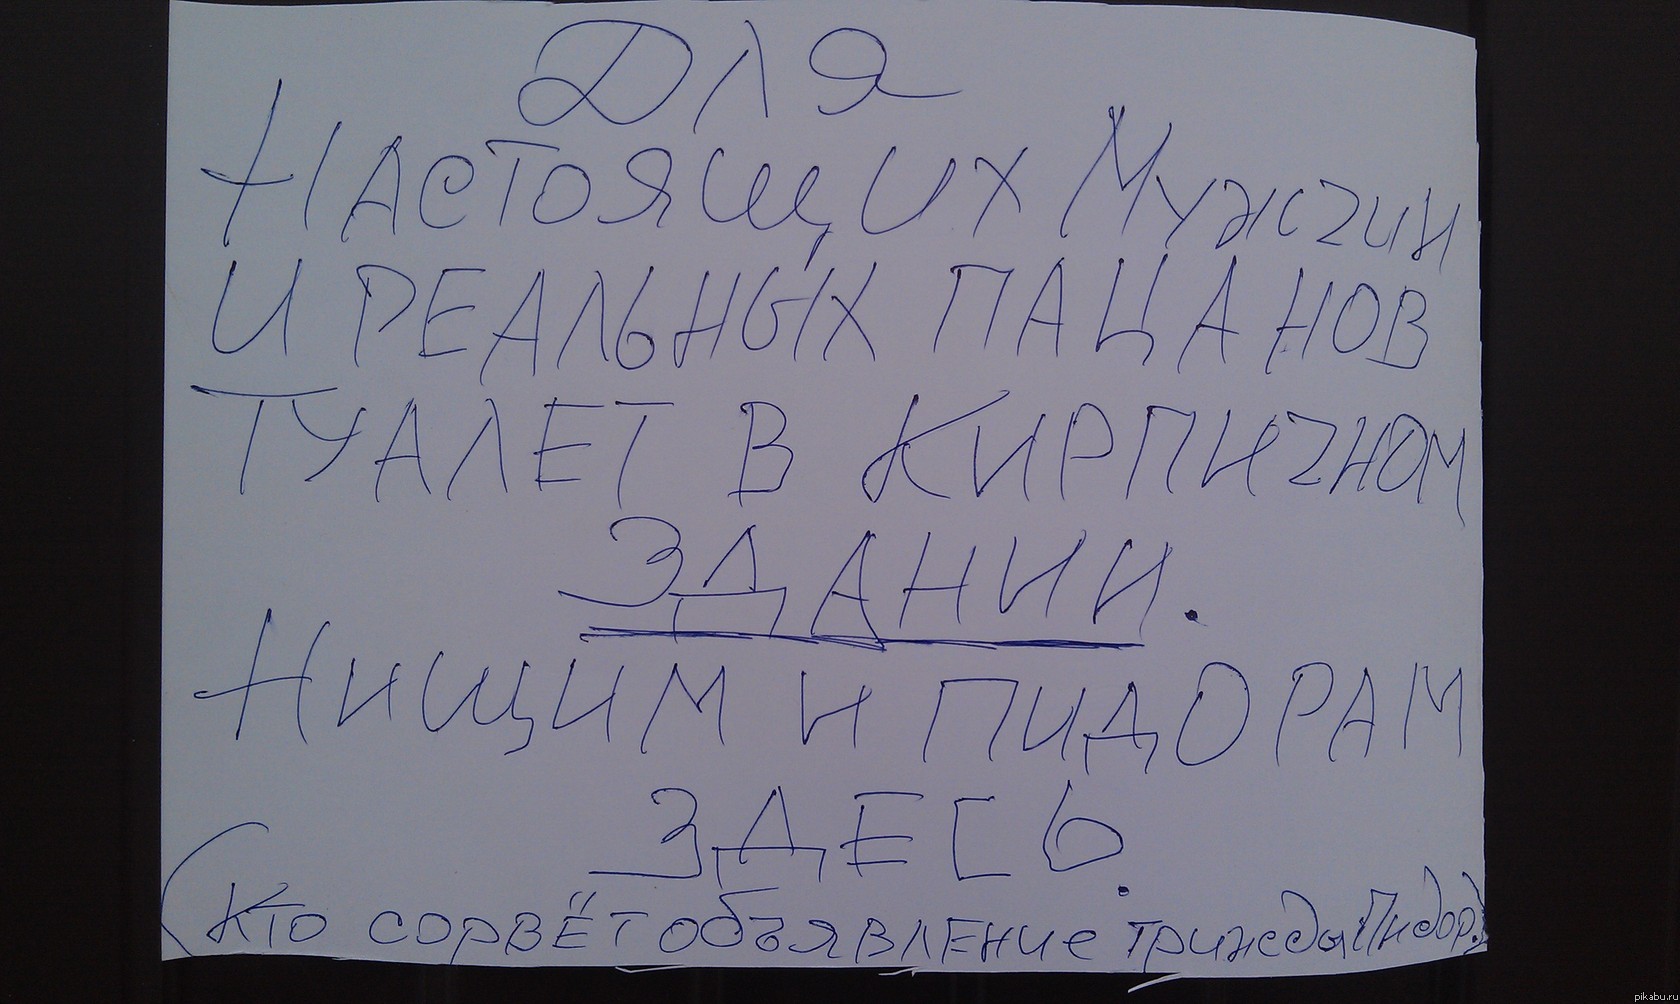 Для
Настоящих Мужчин
И РЕАЛЬНЫХ ПАЦАНОВ
ТУАЛЕТ В КИРПИЧНОМ
ЗДАНИИ.
НИЩИМ И ПИДОРАМ
ЗДЕСЬ.
(Кто сорвёт объявление трижды Пидор.)
pikabu.ru